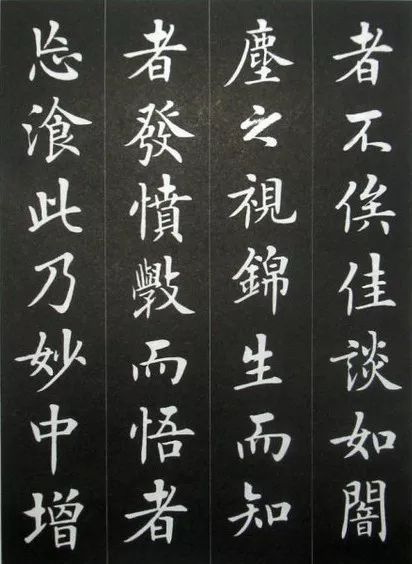 者不俟佳談如闇
塵之視錦生而知
者發憤斆而悟者
忘湌此乃妙中增